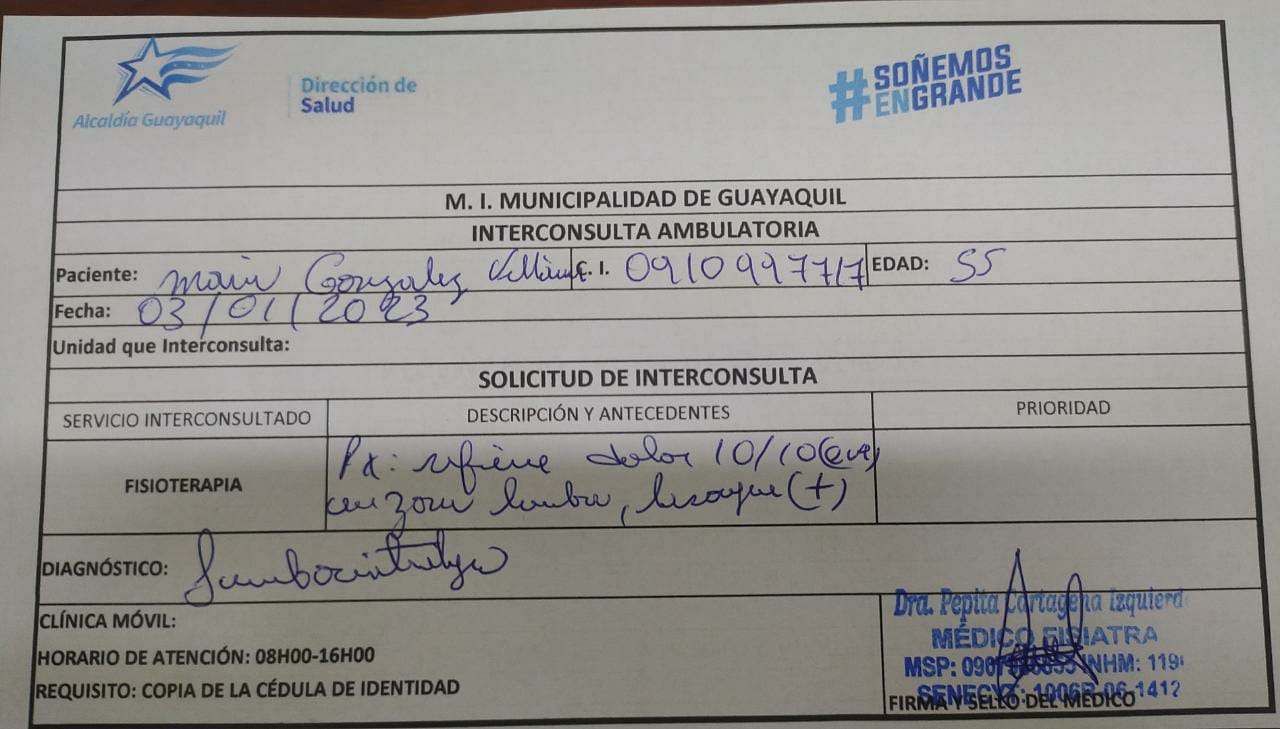 Alcaldía Guayaquil
Dirección de
Salud
#SOÑEMOS
ENGRANDE
M. I. MUNICIPALIDAD DE GUAYAQUIL
INTERCONSULTA AMBULATORIA
Paciente: Gonzalez C. I. EDAD: 55
Fecha: 03/01/2023
Unidad que Interconsulta:
SOLICITUD DE INTERCONSULTA
SERVICIO INTERCONSULTADO DESCRIPCIÓN Y ANTECEDENTES PRIORIDAD
FISIOTERAPIA
Px: refiere dolor 10/10
zona (+)
DIAGNÓSTICO:
CLÍNICA MÓVIL:
HORARIO DE ATENCIÓN: 08H00-16H00
REQUISITO: COPIA DE LA CÉDULA DE IDENTIDAD
Dra. Pepita Cartagena Izquierd
MÉDICO FISIATRA
MSP: INHM:
SENECYT:
FIRMA Y SELLO DEL MÉDICO